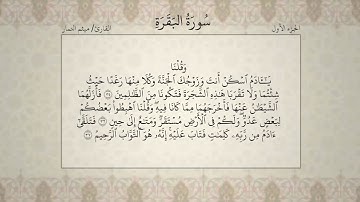 الجزء الأول
سُورَةُ البَقَرَةِ
القارئ/ ميثم التمار
وَقُلْنَا
يَـٰٓـَٔادَمُ ٱسْكُنْ أَنتَ وَزَوْجُكَ ٱلْجَنَّةَ وَكُلَا مِنْهَا رَغَدًا حَيْثُ
شِئْتُمَا وَلَا تَقْرَبَا هَٰذِهِ ٱلشَّجَرَةَ فَتَكُونَا مِنَ ٱلظَّٰلِمِينَ ﴿٣٥﴾ فَأَزَلَّهُمَا
ٱلشَّيْطَٰنُ عَنْهَا فَأَخْرَجَهُمَا مِمَّا كَانَا فِيهِ ۖ وَقُلْنَا ٱهْبِطُوا۟ بَعْضُكُمْ
لِبَعْضٍ عَدُوٌّ ۖ وَلَكُمْ فِى ٱلْأَرْضِ مُسْتَقَرٌّ وَمَتَٰعٌ إِلَىٰ حِينٍ ﴿٣٦﴾ فَتَلَقَّىٰٓ
ءَادَمُ مِن رَّبِّهِۦ كَلِمَٰتٍ فَتَابَ عَلَيْهِ ۚ إِنَّهُۥ هُوَ ٱلتَّوَّابُ ٱلرَّحِيمُ ﴿٣٧﴾